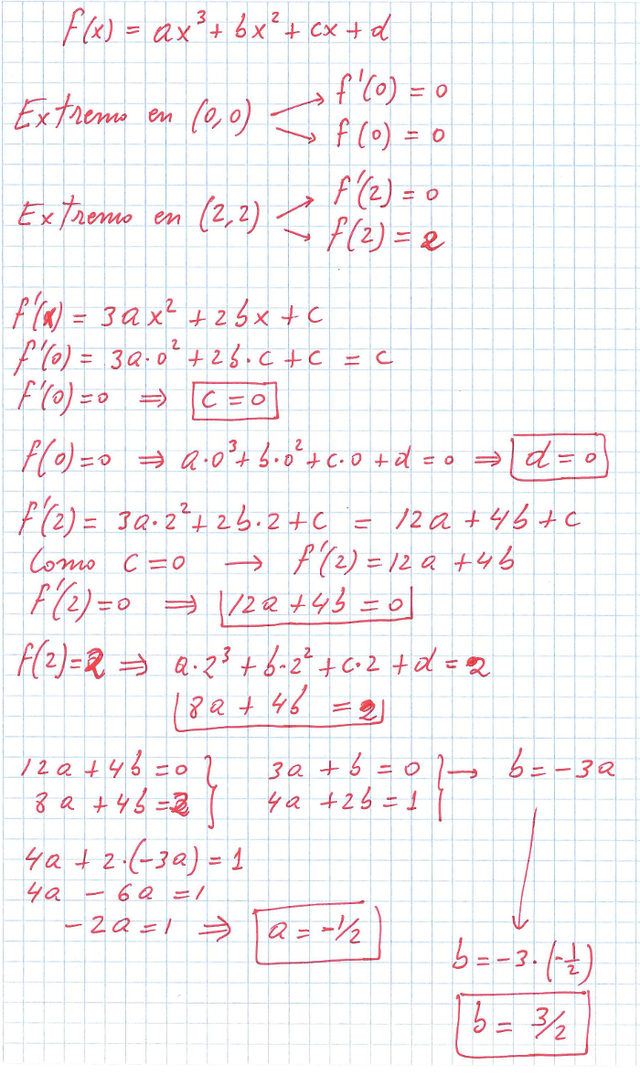 f(x) = ax³ + bx² + cx + d
f'(0) = 0
Extremo en (0,0)
f(0) = 0
f'(2) = 0
Extremo en (2,2)
f(2) = 2
f'(x) = 3ax² + 2bx + c
f'(0) = 3a·0² + 2b·c + c = c
f'(0) = 0 ⇒ c = 0
f(0) = 0 ⇒ a·0³ + b·0² + c·0 + d = 0 ⇒ d = 0
f'(2) = 3a·2² + 2b·2 + c = 12a + 4b + c
Como c = 0 → f'(2) = 12a + 4b
f'(2) = 0 ⇒ 12a + 4b = 0
f(2) = 2 ⇒ a·2³ + b·2² + c·2 + d = 2
8a + 4b = 2
12a + 4b = 0 } 3a + b = 0 } → b = -3a
8a + 4b = 2 } 4a + 2b = 1 }
4a + 2·(-3a) = 1
4a - 6a = 1
-2a = 1 ⇒ a = -1/2
b = -3·(-1/2)
b = 3/2